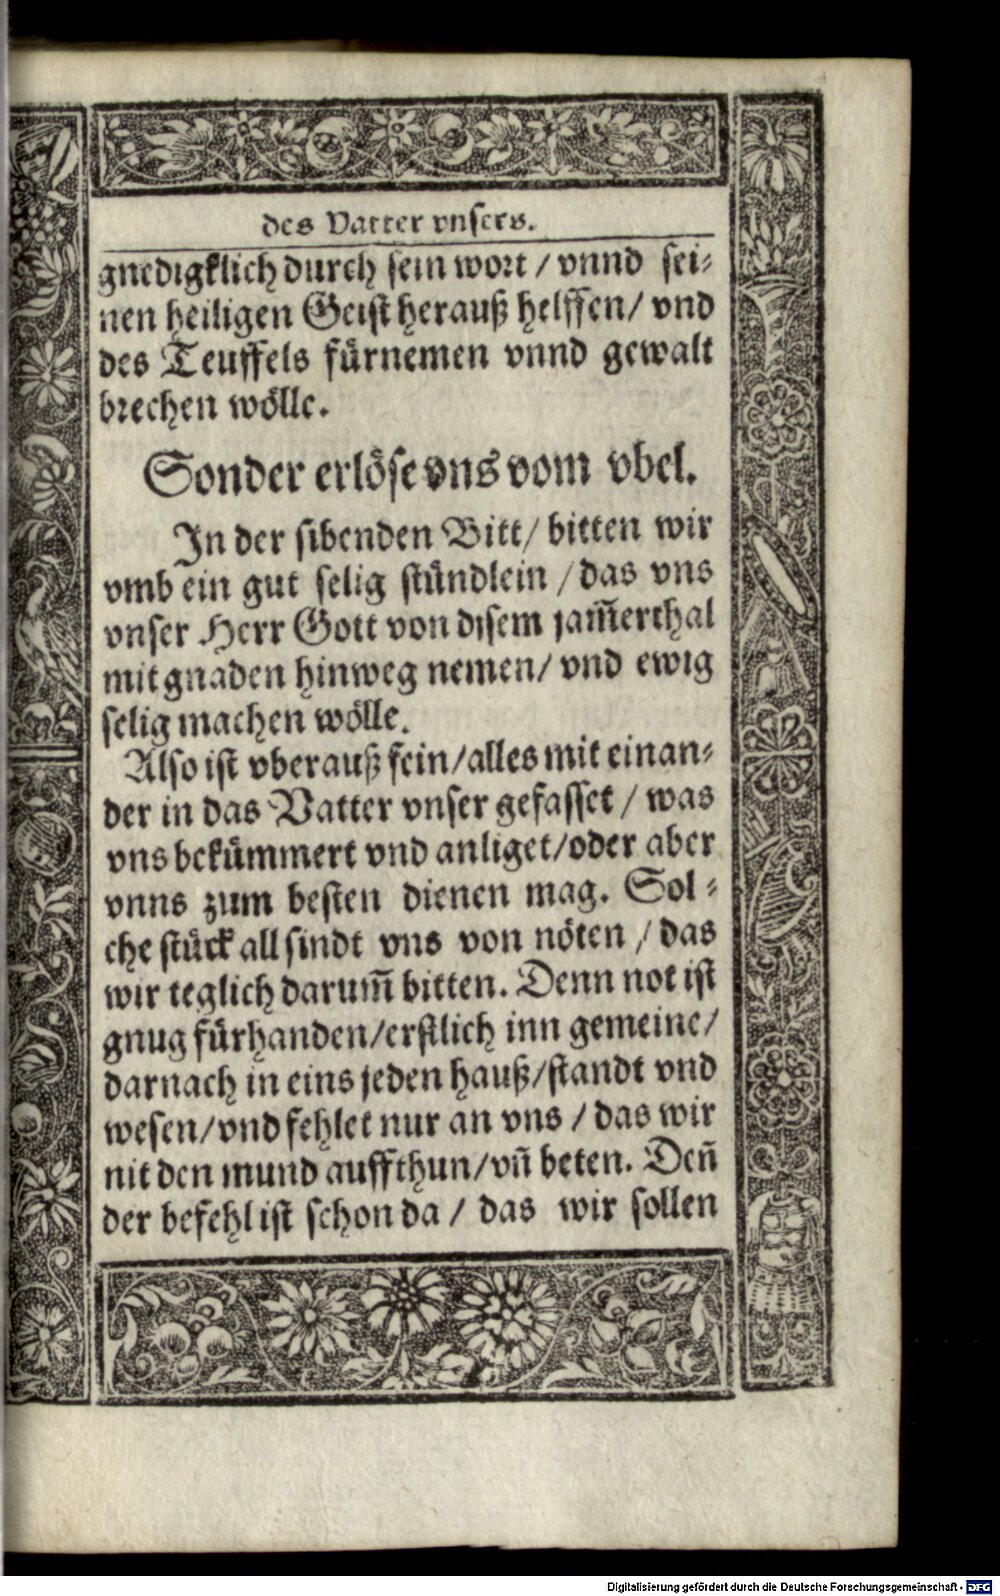 des Vatter vnsers.
gnedigklich durch sein wort / vnnd sei-
nen heiligen Geist herauß helffen / vnd
des Teuffels fürnemen vnnd gewalt
brechen wölle.
Sonder erlöse vns vom vbel.
In der sibenden Bitt / bitten wir
vmb ein gut selig stündlein / das vns
vnser Herr Gott von disem jam̃erthal
mit gnaden hinweg nemen / vnd ewig
selig machen wölle.
Also ist vberauß fein / alles mit einan-
der in das Vatter vnser gefasset / was
vns bekümmert vnd anliget / oder aber
vnns zum besten dienen mag. Sol-
che stück all sindt vns von nöten / das
wir teglich darum̃ bitten. Denn not ist
gnug fürhanden / erstlich inn gemeine /
darnach in eins jeden hauß / standt vnd
wesen / vnd fehlet nur an vns / das wir
nit den mund auffthun / vñ beten. Deñ
der befehl ist schon da / das wir sollen
Digitalisierung gefördert durch die Deutsche Forschungsgemeinschaft - DFG